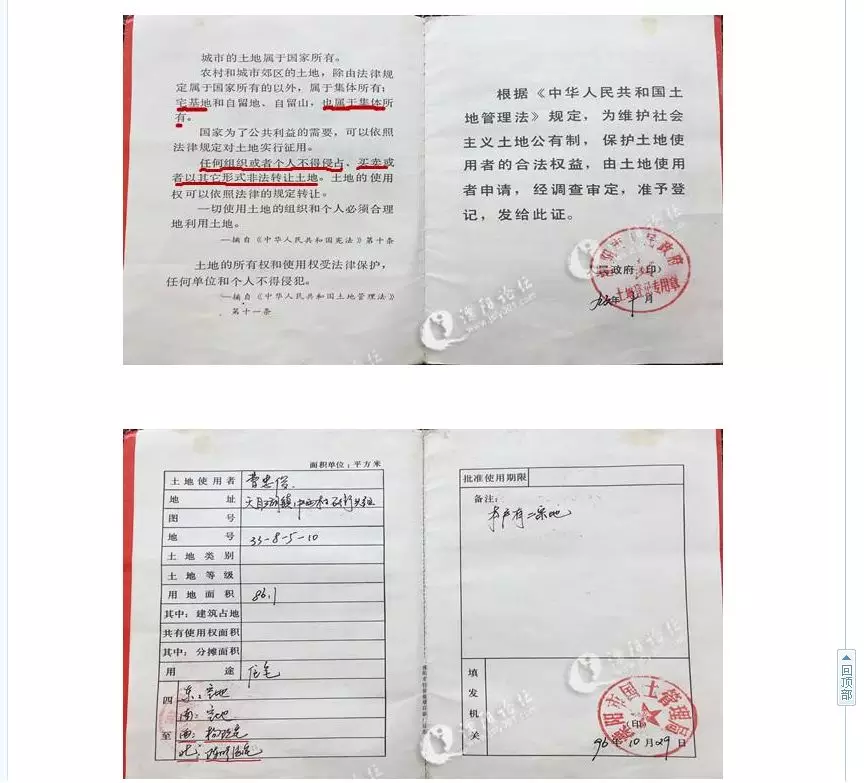 城市的土地属于国家所有。
农村和城市郊区的土地，除由法律规
定属于国家所有的以外，属于集体所有；
宅基地和自留地、自留山，也属于集体所
有。
国家为了公共利益的需要，可以依照
法律规定对土地实行征用。
任何组织或者个人不得侵占、买卖或
者以其它形式非法转让土地。土地的使用
权可以依照法律的规定转让。
一切使用土地的组织和个人必须合理
地利用土地。
—摘自《中华人民共和国宪法》第十条
土地的所有权和使用权受法律保护，
任何单位和个人不得侵犯。
—摘自《中华人民共和国土地管理法》
第十一条
根据《中华人民共和国土
地管理法》规定，为维护社会
主义土地公有制，保护土地使
用者的合法权益，由土地使用
者申请，经调查审定，准予登
记，发给此证。
阳市人民政府
县政府（印）
土地登记专用章
年 月
溧阳论坛
面积单位：平方米
土地使用者 曹忠
地 址 天目湖镇中田村
图 号
地 号 33-8-5-10
土地类别
土地等级
用地面积 86.1
其中：建筑占地
共有使用权面积
其中：分摊面积
用 途 住宅
四至
东：空地
南：空地
西：
北：
批准使用期限
备注：
本户有二宗地
填发机关
溧阳市国土管理局
（印）
96年10月29日
溧阳论坛
回顶部